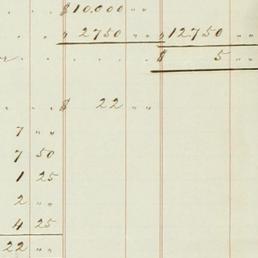 . . $ 10,000 " "
. . $ 2750 " " $ 12750 " "
. . . $ 5 " "
. . $ 22 " "
7 " "
7 50
1 25
2 " "
4 25
22 " "